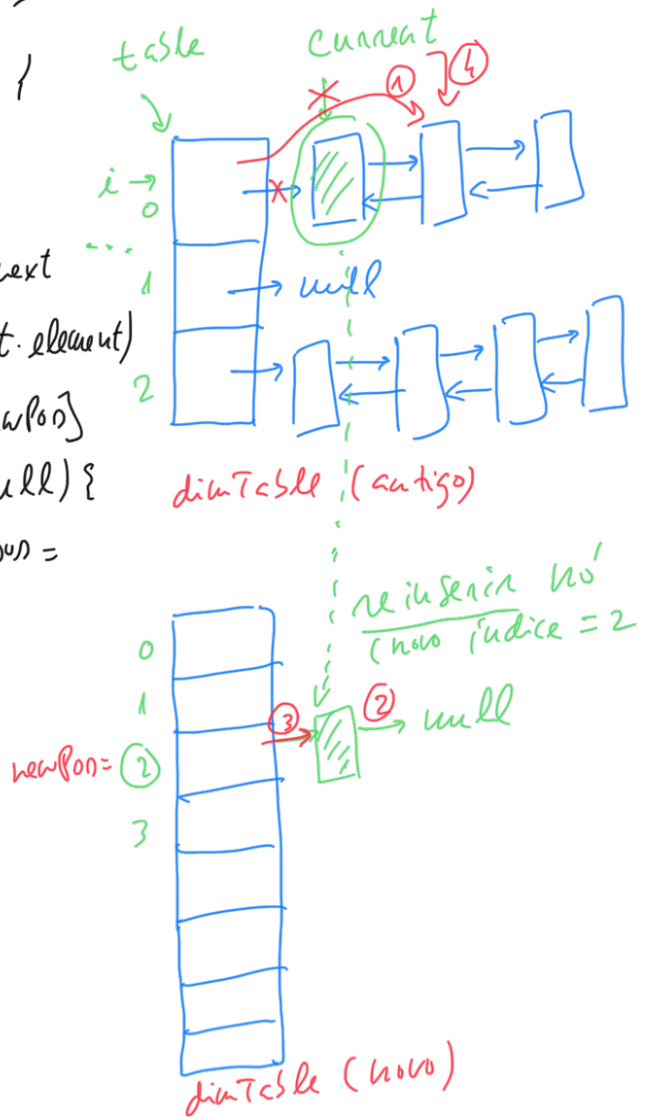 {
table
current
①
④
i →
0
...
1
null
2
next
t.element)
wPos]
ull) {
ous =
dimTable (antigo)
reinserir nó
(novo índice = 2
0
1
③
②
null
newPos=
②
3
dimTable (novo)